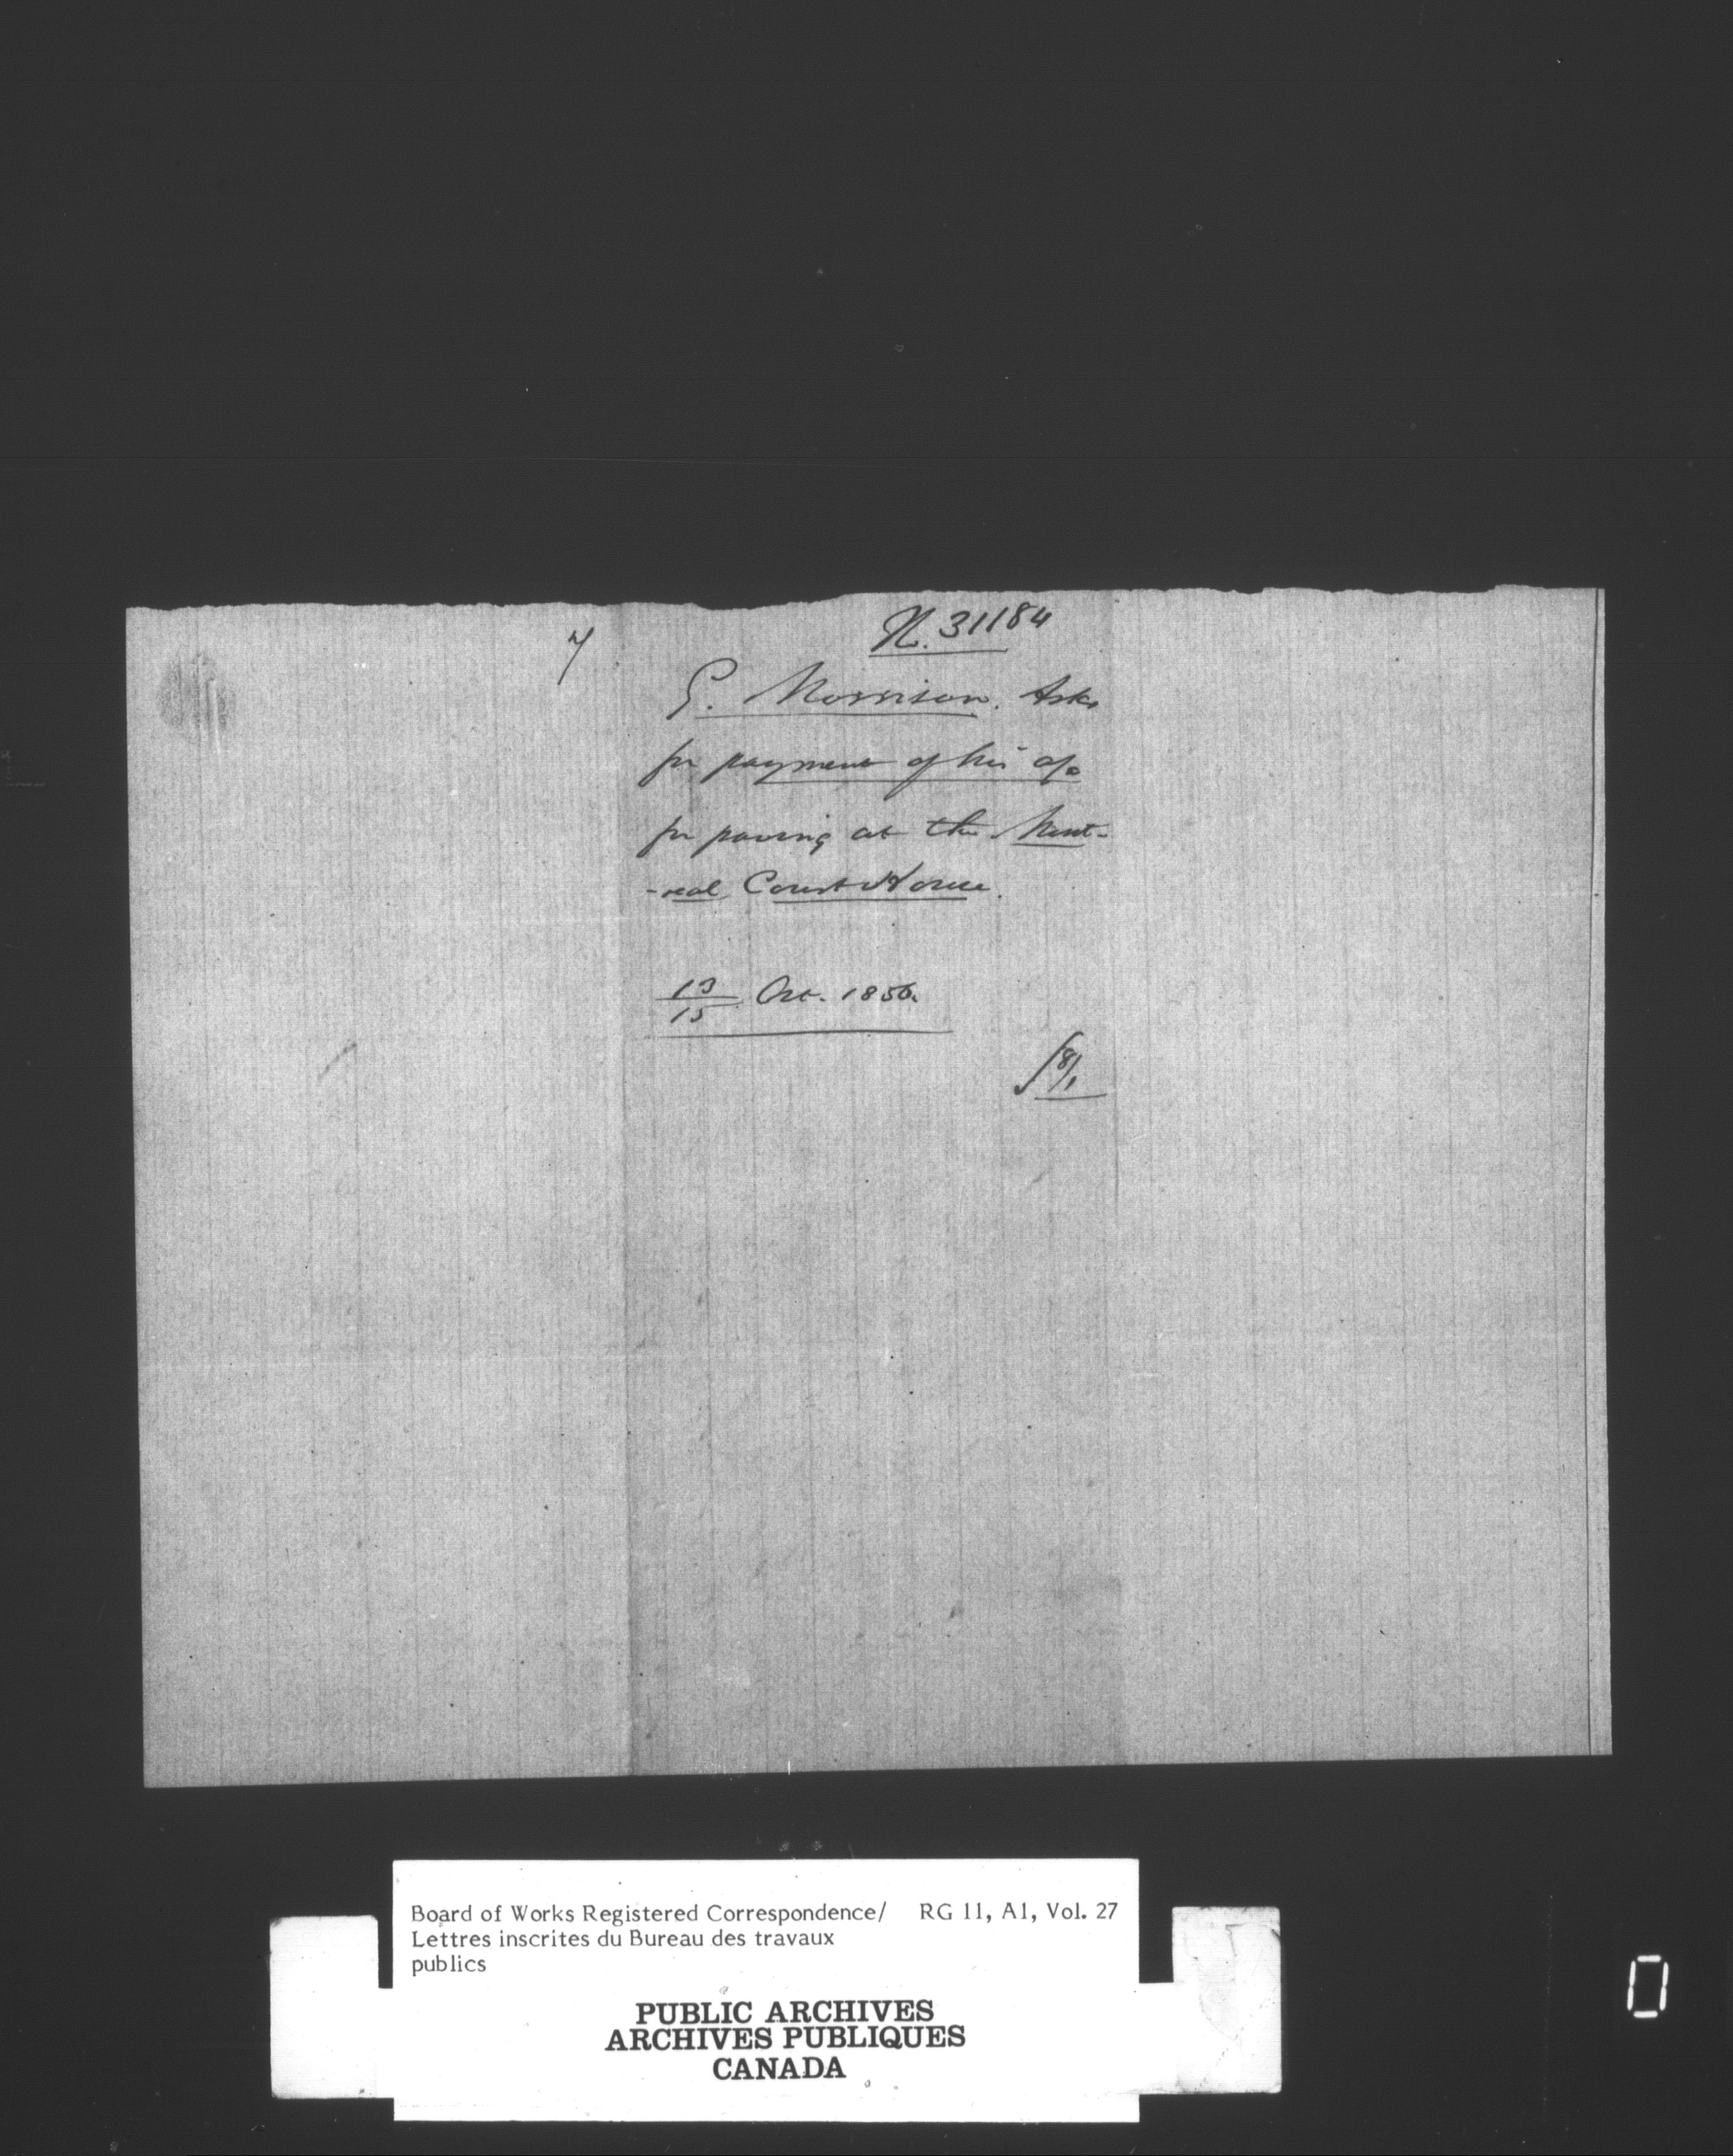 7
N. 31184
G. Morrison. Asks
for payment of his a/c
for paving at the Mont-
-real Court House.
13/15 Oct. 1856.
Board of Works Registered Correspondence/ RG 11, A1, Vol. 27
Lettres inscrites du Bureau des travaux
publics
PUBLIC ARCHIVES
ARCHIVES PUBLIQUES
CANADA
0